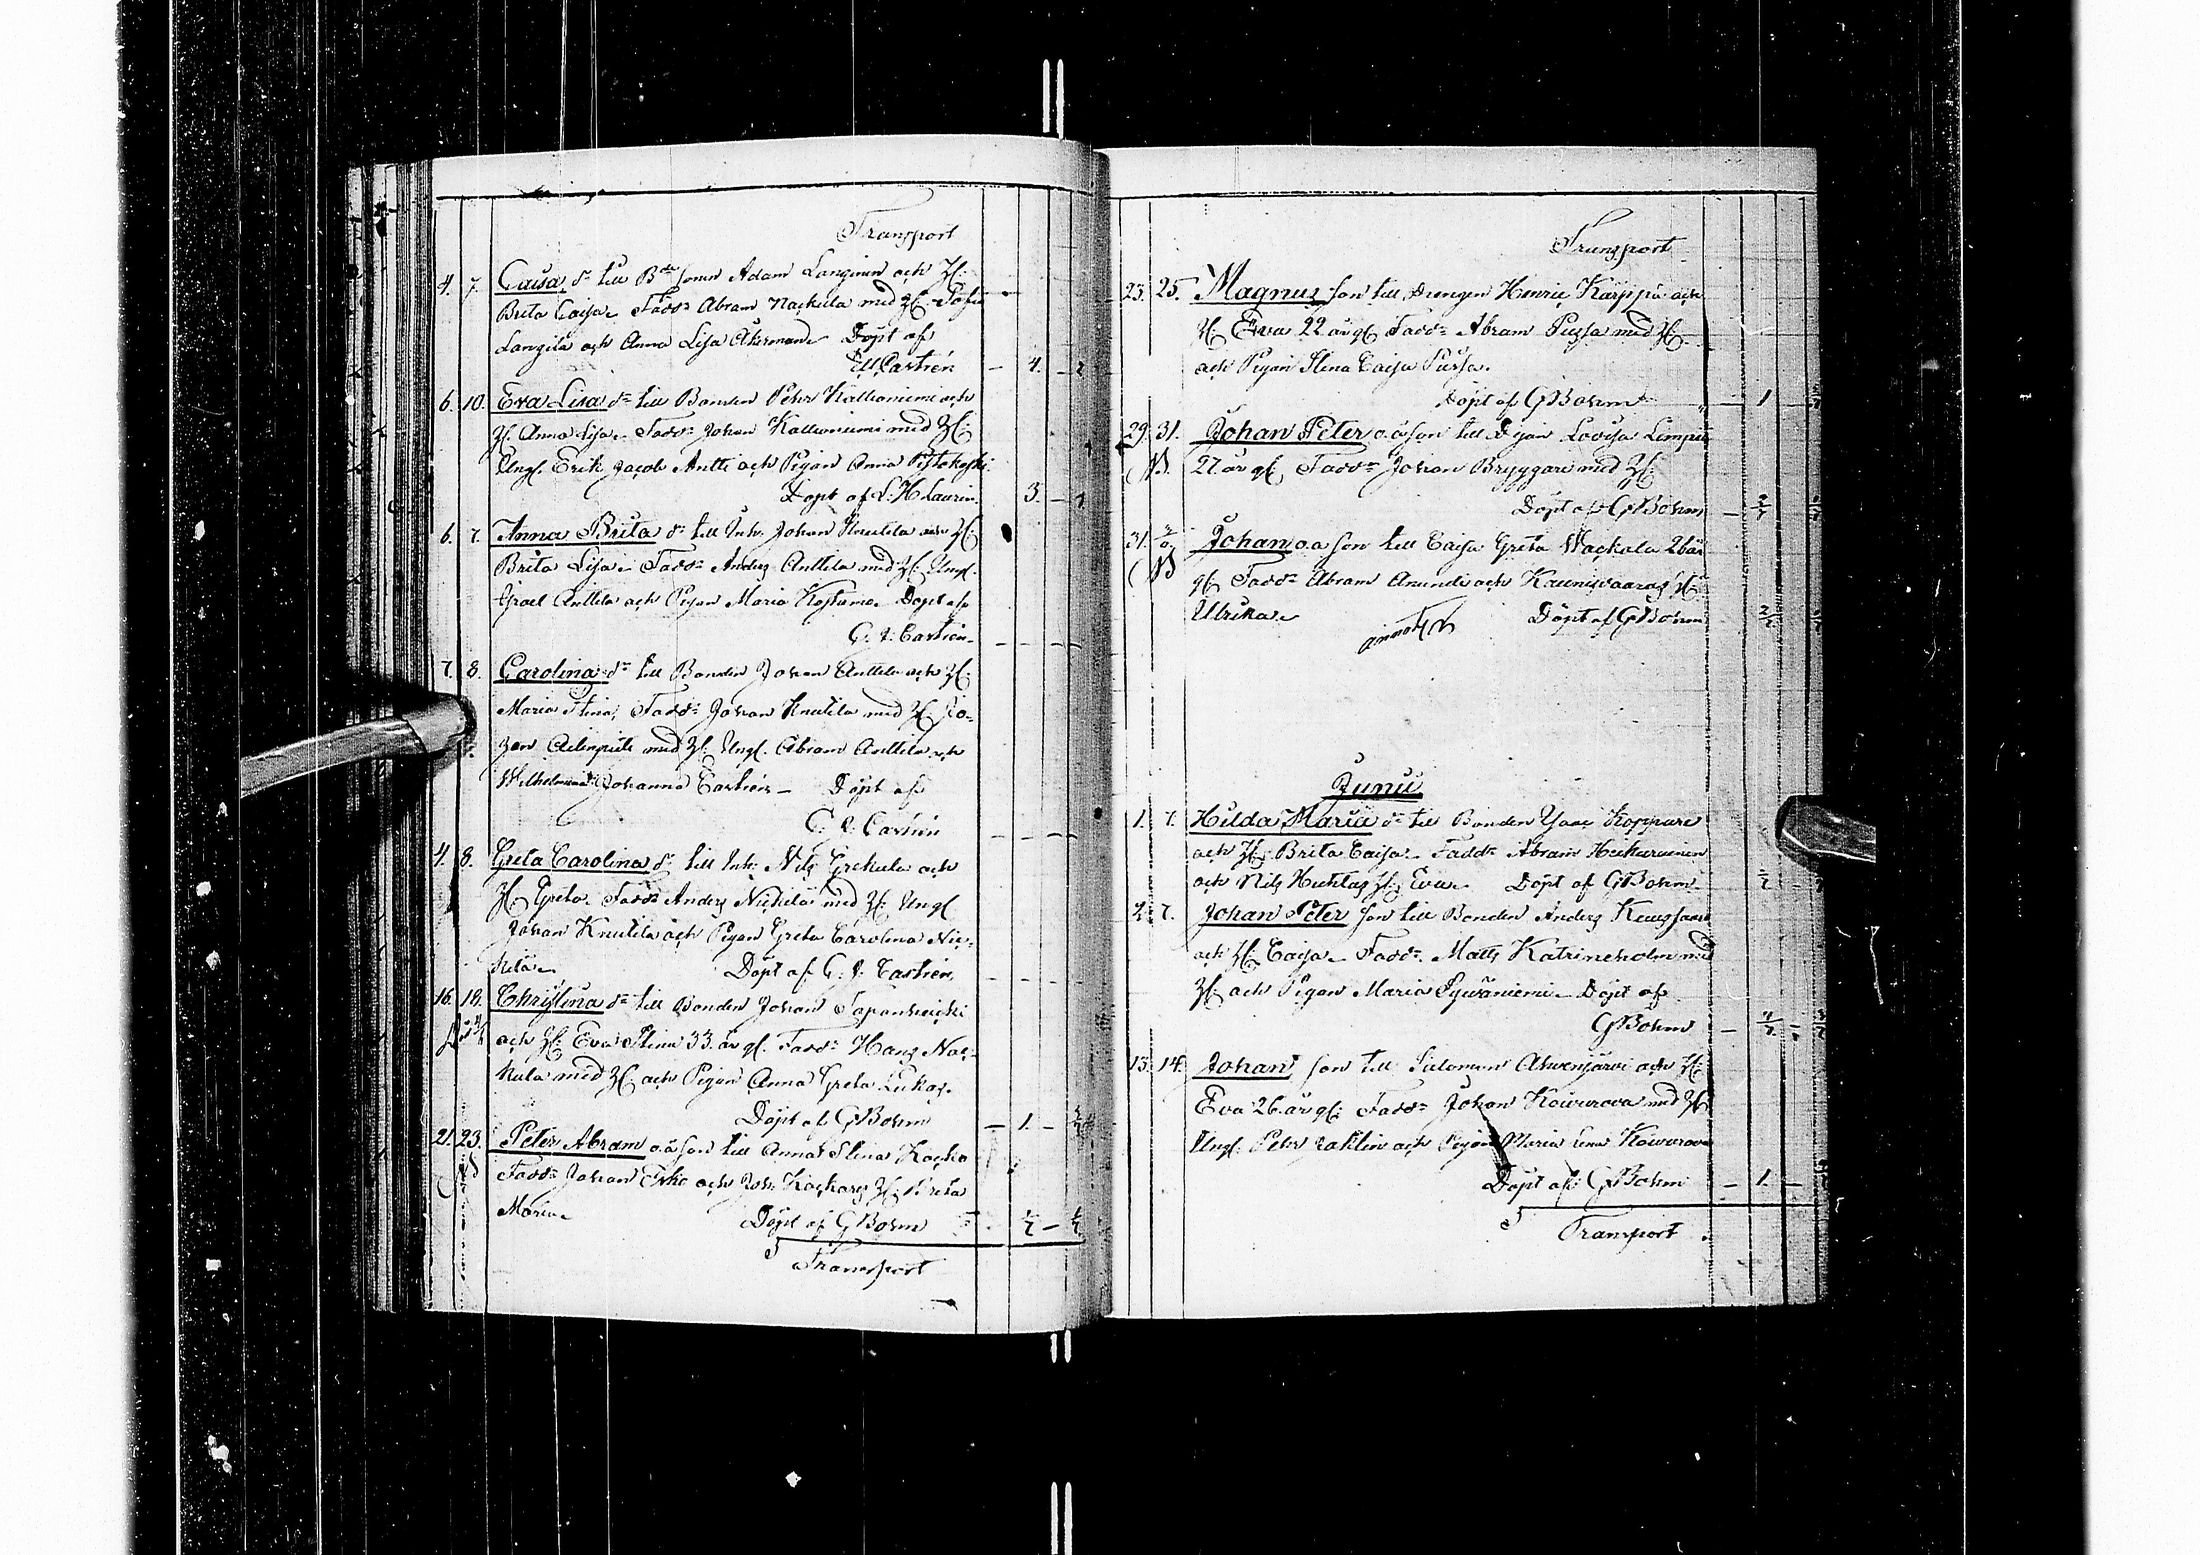 Transport
4. 7. Caisa dr till Bde sonen Adam Langinen och H:
Brita Caisa. Faddr Abram Nackula med H: Sofia
Langilä och Anna Lisa Åkerman. Döpt af
Castrén — 4. —
6. 10. Eva Lisa dr till Bonden Pehr Kallioniemi och
H: Anna Lisa. Faddr Johan Kallioniemi med H:
Ungl. Erik Jacob Antti och Pigan Anna
Döpt af L. H. Laurin. 3. —
6. 7. Anna Brita dr till Inh. Johan Knutila och H:
Brita Lisa. Faddr Anders Anttila med H: Ungl.
Israel Anttila och Pigan Maria Kostamo. Döpt af
C. J. Castrén.
7. 8. Carolina dr till Bonden Johan Anttila och H:
Maria Stina, Faddr Johan Knutila med H: Jo-
han med H: Ungl. Abram Anttila och
Wilhelmina Johanna Castrén — Döpt af
Castrén
4. 8. Greta Carolina dr till Inh. Nils Grekula och
H: Greta. Faddr Anders Nickilä med H: Ungl
Johan Knutila och Pigan Greta Carolina Nic-
kilä. Döpt af C. J. Castrén.
16. 18. Christina dr till Bonden Johan
och H: Eva Stina 33. år gl. Faddr Hans Nac-
kula med H: och Pigan Anna Greta Lukas.
Döpt af G Bohm — 1. —
21. 23. Peter Abram o.ä son till Anna Stina Kocko
Faddr Johan och Joh. Kockos H: Greta
Maria. Döpt af G Bohm
Transport
Transport
23. 25. Magnus son till Drengen Henric Karppa och
H: Eva 22 år gl Faddr Abram Pussa med H:
och Pigan Stina Caisa Pussa.
Döpt af G Bohm — 1 —
29. 31. Johan Peter o.ä son till Pigan Lovisa
27 år gl Faddr Johan Bryggare med H:
Döpt af G Bohm
31. Johan o.ä son till Caisa Greta Wackala 26 år
gl Faddr Abram Anundi och Kaunisvaaras H:
Ulrika. Döpt af G Bohm
Junii
1. 7. Hilda Maria dr till Bonden Isac Koppare
och H: Brita Caisa. Faddr Abram Heikuruinen
och Nils Huhtas H: Eva. Döpt af G Bohm
2. 7. Johan Peter son till Bonden Anders
och H: Caisa. Faddr Matts Katrineholm med
H: och Pigan Maria Sywäniemi. Döpt af
G Bohm
13. 14. Johan son till Salomon Ahvenjärvi och H:
Eva 26. år gl: Faddr Johan Koivurova med H:
Ungl. Pehr och Pigan Maria Lena Koivurova
Döpt af G Bohm — 1. —
Transport